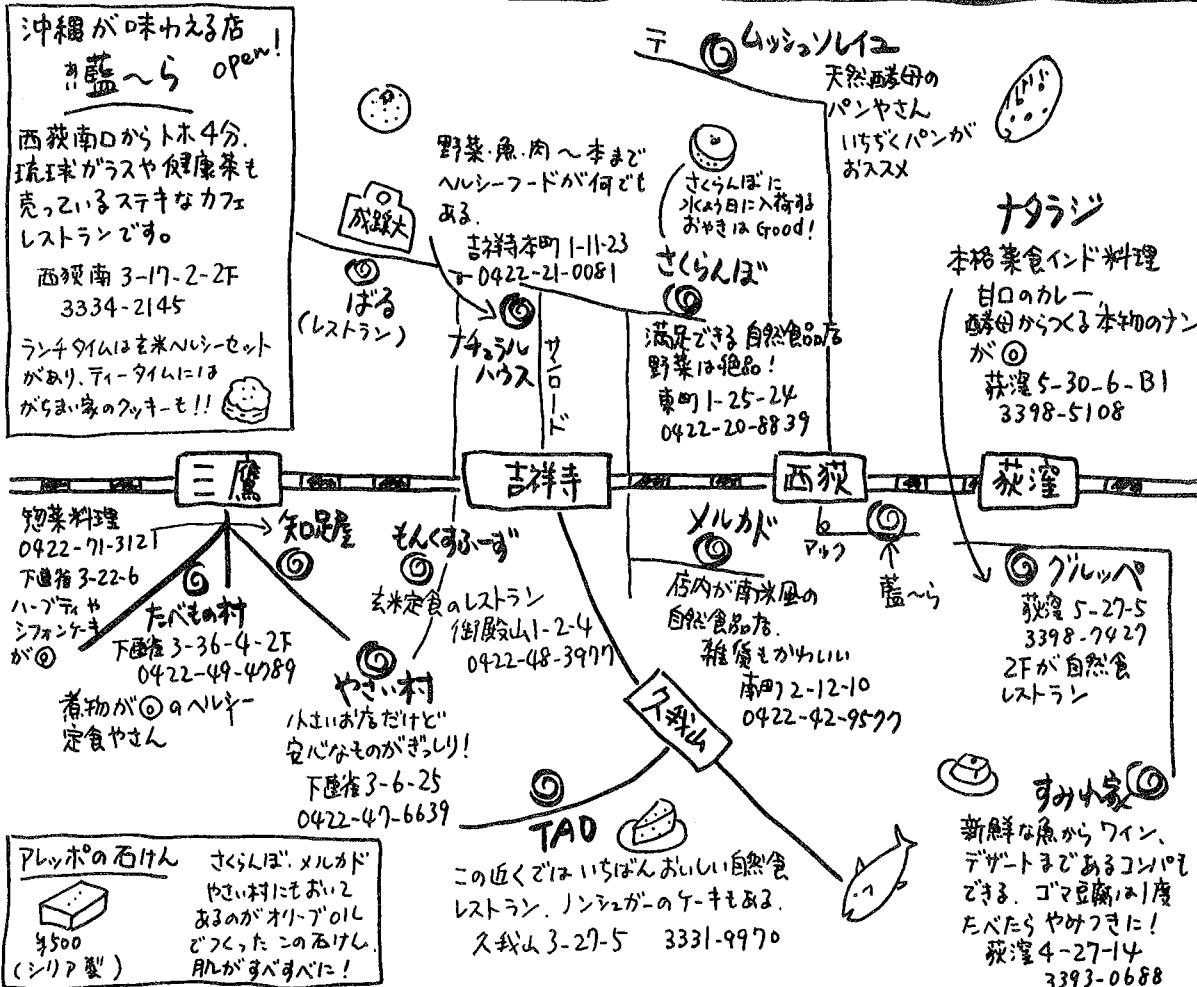 沖縄が味わえる店
藍〜ら
あい
open!
西荻南口からトホ4分.
琉球ガラスや健康茶も
売っているステキなカフェ
レストランです。
西荻南 3-17-2-2F
3334-2145
ランチタイムは玄米ヘルシーセット
があり、ティータイムには
がちまい家のクッキーも!!
〒
ムッシュソレイユ
天然酵母の
パンやさん
いちぢくパンが
おススメ
成蹊大
ばる
(レストラン)
野菜・魚・肉〜本まで
ヘルシーフードが何でも
ある.
吉祥寺本町 1-11-23
0422-21-0081
ナチュラル
ハウス
サンロード
さくらんぼに
水よう日に入荷する
おやきは Good!
さくらんぼ
満足できる自然食品店
野菜は絶品!
東町 1-25-24
0422-20-8839
ナタラジ
本格菜食インド料理
甘口のカレー、
酵母からつくる本物のナン
が◎
荻窪 5-30-6-B1
3398-5108
三鷹
吉祥寺
西荻
荻窪
惣菜料理
0422-71-3121
下連雀 3-22-6
ハーブティや
シフォンケーキ
が◎
知足屋
たべもの村
下連雀 3-36-4-2F
0422-49-4789
煮物が◎のヘルシー
定食やさん
やさい村
小さいお店だけど
安心なものがぎっしり!
下連雀 3-6-25
0422-47-6639
もんくすふーず
玄米定食のレストラン
御殿山 1-2-4
0422-48-3977
メルカド
店内が南米風の
自然食品店.
雑貨もかわいい
南町 2-12-10
0422-42-9577
マック
藍〜ら
グルッペ
荻窪 5-27-5
3398-7427
2Fが自然食
レストラン
久我山
TAO
この近くではいちばんおいしい自然食
レストラン. ノンシュガーのケーキもある.
久我山 3-27-5 3331-9970
すみれ家
新鮮な魚からワイン、
デザートまであるコンパも
できる. ゴマ豆腐は1度
たべたら やみつきに!
荻窪 4-27-14
3393-0688
アレッポの石けん
¥500
(シリア製)
さくらんぼ、メルカド
やさい村にもおいて
あるのがオリーブOIL
でつくった この石けん.
肌がすべすべに!